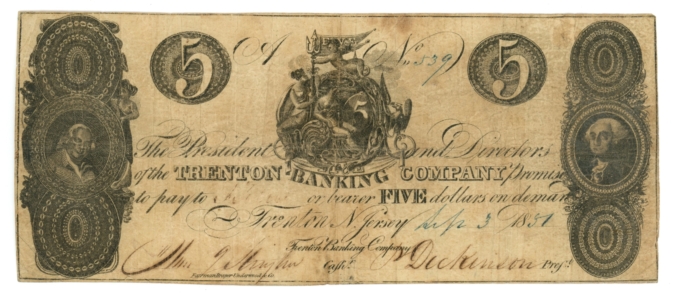 5 (A No 539) 5
The President and Directors
of the TRENTON BANKING COMPANY Promise
to pay to or bearer FIVE dollars on demand
Trenton N. Jersey Sep 3 1831
Trenton Banking Company
Cashr. P Dickinson Prest.